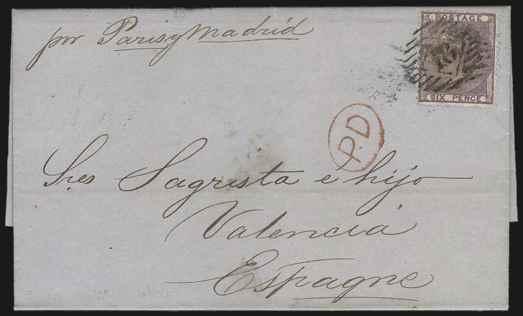 por Paris y Madrid
POSTAGE
SIX PENCE
P.D
Sres Sagrista é hijo
Valencia
Espagne